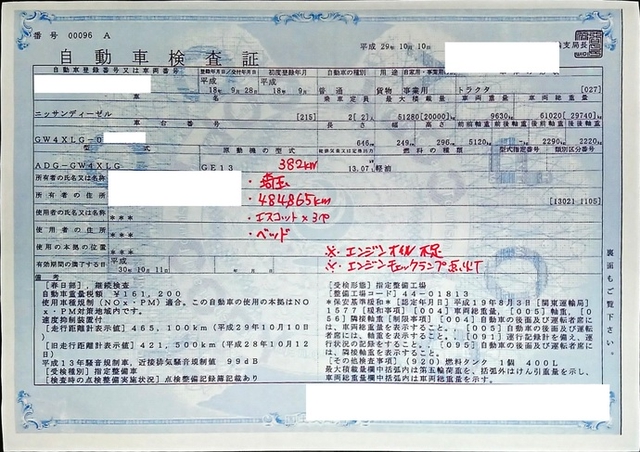 番号 00096 A
平成 29年10月10日
自動車検査証
支局長
自動車登録番号又は車両番号 登録年月日/交付年月日 初度登録年月 自動車の種別 用途 自家用・事業用
平成 18年 9月 28日 平成 18年 9月 普通 貨物 事業用 トラクタ [027]
乗車定員 最大積載量 車両重量 車両総重量
ニッサンディーゼル [215] 2[ 2]人 51280[20000]kg 9630kg 61020[29740]kg
車台番号 長さ 幅 高さ 前前軸重 前後軸重 後前軸重 後後軸重
GW4XLG-0 646cm 249cm 296cm 5120kg -kg 2290kg 2220kg
型式 原動機の型式 燃料の種類 型式指定番号 類別区分番号
ADG-GW4XLG GE13 13.07L 軽油
382km
所有者の氏名又は名称
・埼玉
所有者の住所 [13021 1105]
・484865km
使用者の氏名又は名称 ***
・エスコット×3ペ
使用者の住所 ***
・ベッド
使用の本拠の位置 ***
※・エンジンオイル不足
有効期間の満了する日 平成 30年10月11日
※・エンジンチェックランプ点灯
備考
[春日部],継続検査
自動車重量税額 ¥161,200
使用車種規制(NOx・PM)適合。この自動車の使用の本拠はNOx・PM対策地域内です。
速度抑制装置付
[走行距離計表示値] 465,100km(平成29年10月10日)
[旧走行距離計表示値] 421,500km(平成28年10月12日)
平成13年騒音規制車、近接排気騒音規制値 99dB
[受検種別] 指定整備車
[検査時の点検整備実施状況] 点検整備記録簿記載あり
[受検形態] 指定整備工場
[整備工場コード] 44-01813
*[保安基準緩和] [認定年月日] 平成19年8月3日[関東運輸局]
1577[緩和事項] [004] 車両総重量、[005] 軸重、[0
56] 隣接軸重[制限事項] [084] 自動車の後面及び運転者席に
は、車両総重量を表示すること。、[085] 自動車の後面及び運転者
席には、軸重を表示すること。、[091] 運行記録計を備え、運
行状況の記録を行うこと。、[095] 自動車の後面及び運転者席に
は、隣接軸重を表示すること。
[その他検査事項] (920) 燃料タンク 1個 400L
最大積載量欄中括弧内は第五輪荷重を、括弧外はけん引重量を示し、
車両総重量欄中括弧内は車両総重量を示す。
裏面もご覧下さい。